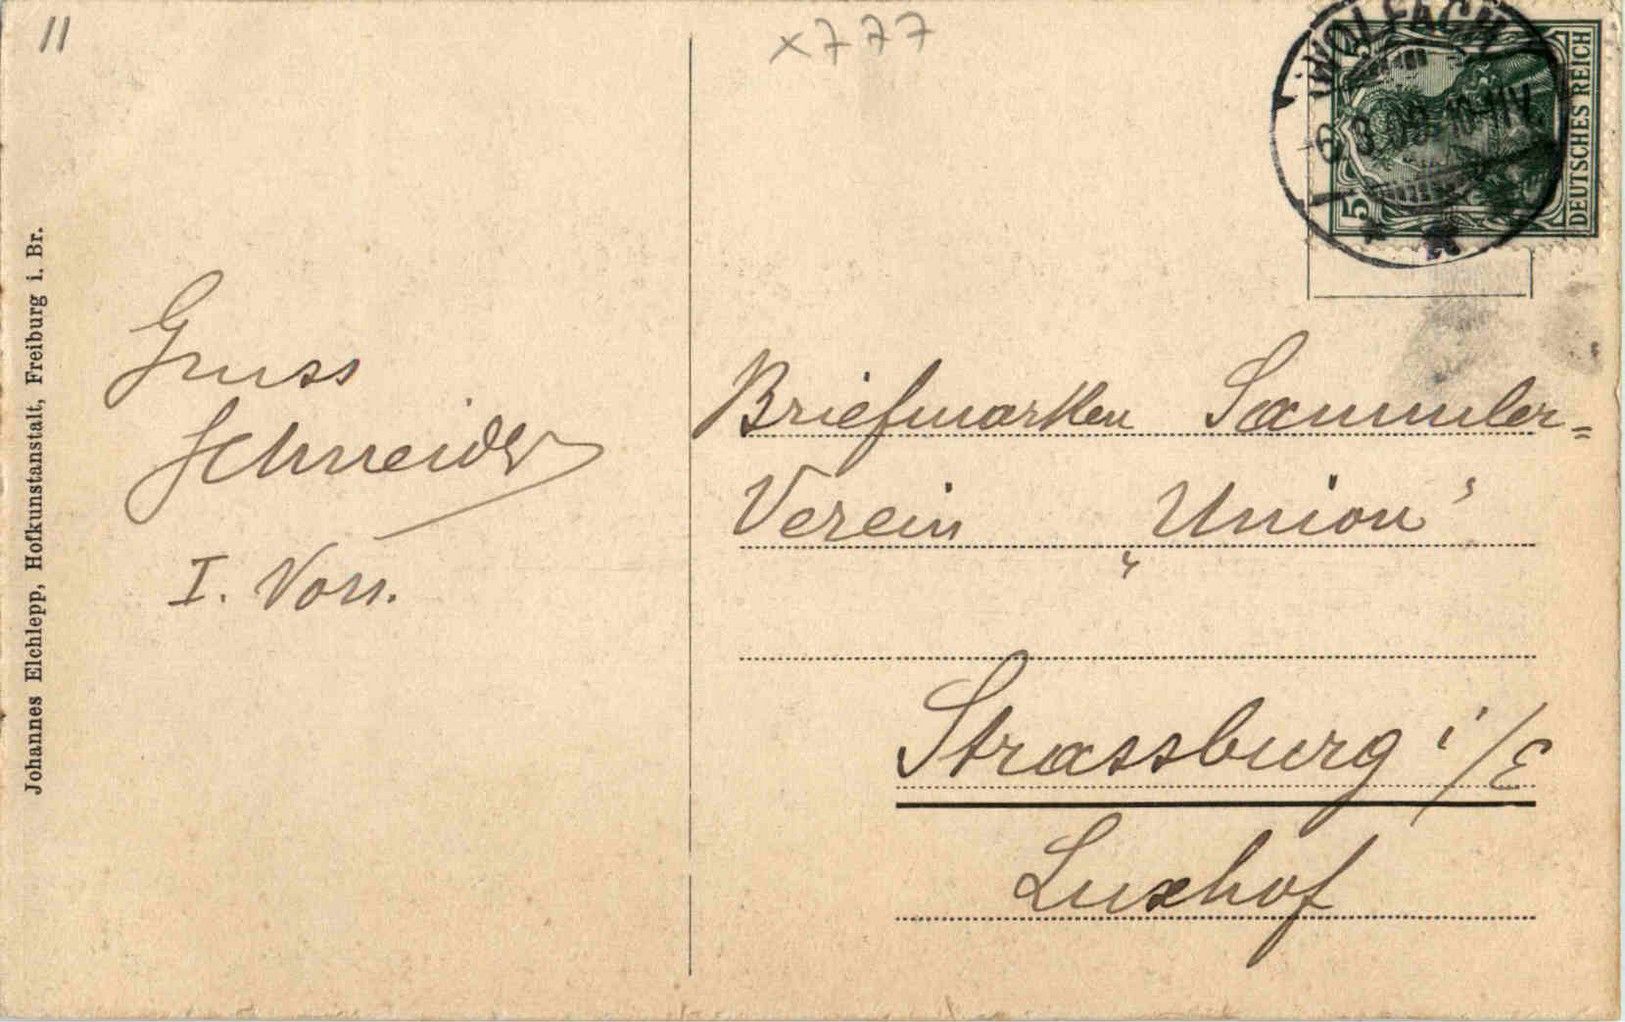 11
x777
WOLFACH
6.8.09.10-11V.
5
DEUTSCHES REICH
Johannes Elchlepp, Hofkunstanstalt, Freiburg i. Br.
Gruss
Schneider
I. Vors.
Briefmarken Sammler=
Verein „Union“
Strassburg i/E
Luxhof